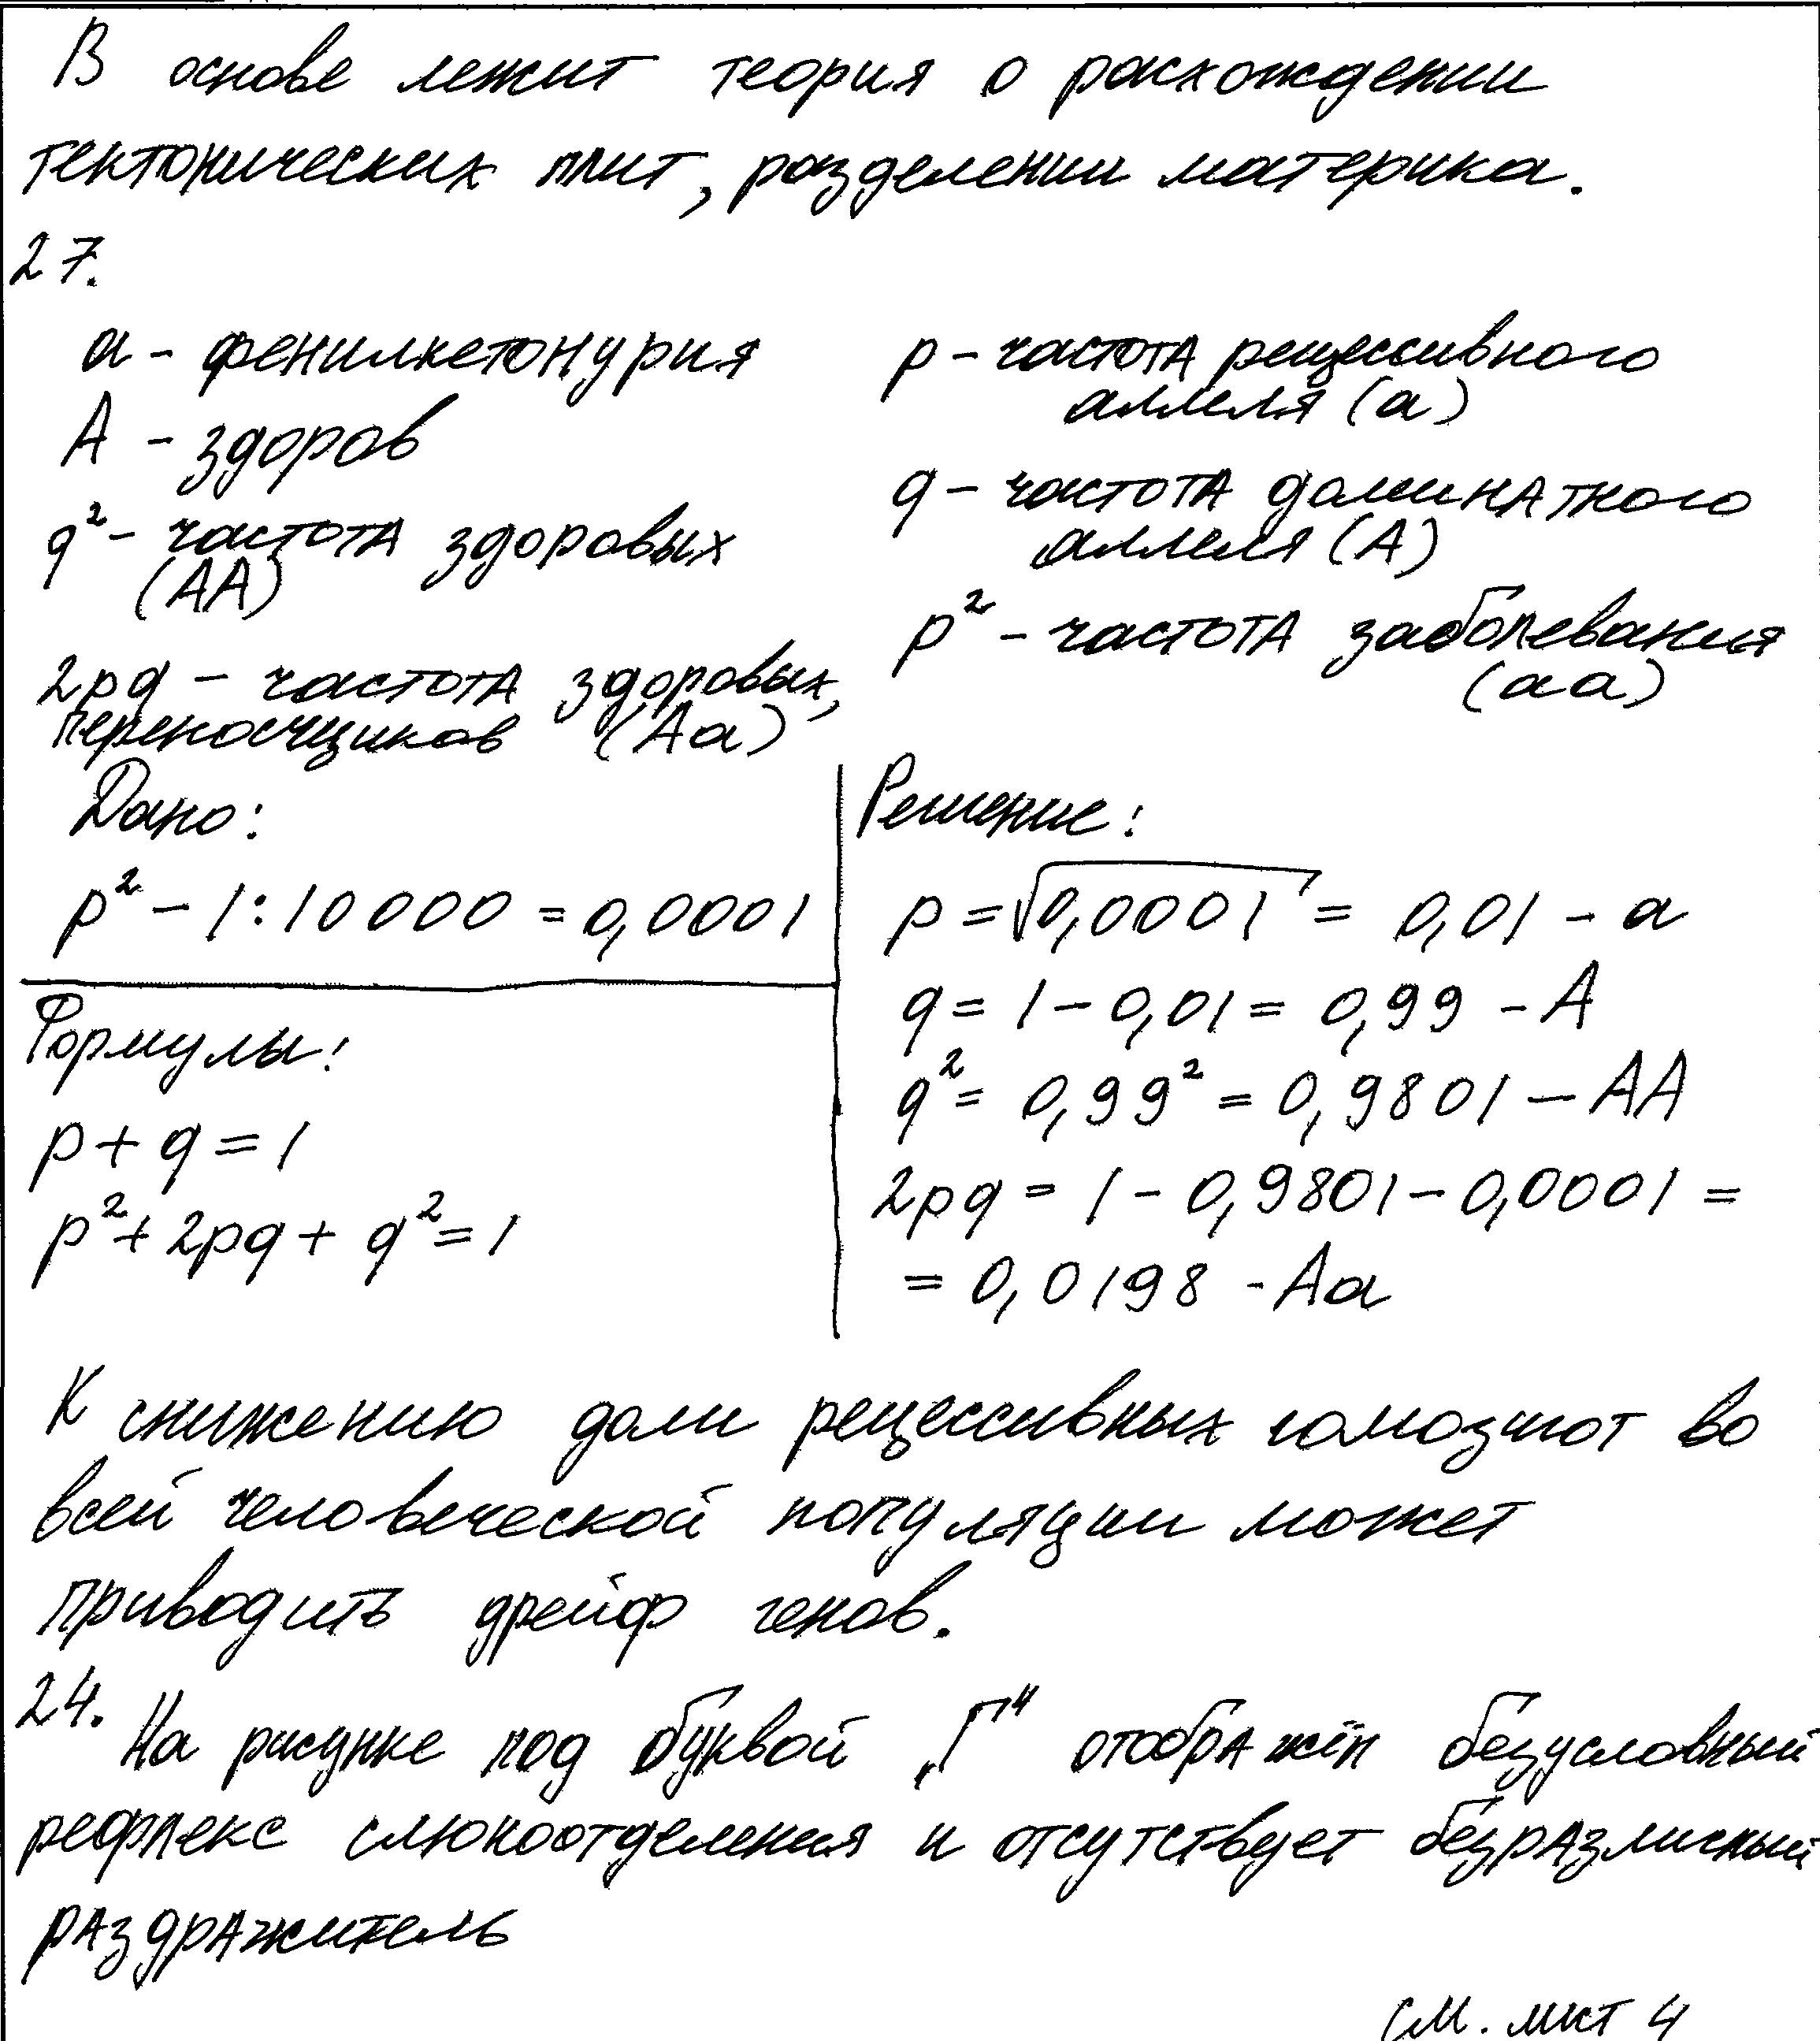 В основе лежит теория о расхождении
тектонических плит, разделении материка.
27.
а - фенилкетонурия
А - здоров
q² - частота здоровых
(АА)
2pq - частота здоровых,
переносчиков (Аа)
p - частота рецессивного
аллеля (а)
q - частота доминатного
аллеля (А)
p² - частота заболевания
(аа)
Дано:
p² - 1:10000 = 0,0001
Формулы:
p + q = 1
p² + 2pq + q² = 1
Решение:
p = √0,0001 = 0,01 - а
q = 1 - 0,01 = 0,99 - А
q² = 0,99² = 0,9801 - АА
2pq = 1 - 0,9801 - 0,0001 =
= 0,0198 - Аа
К снижению доли рецессивных гомозигот во
всей человеческой популяции может
приводить дрейф генов.
24. На рисунке под буквой „Г“ отображён безусловный
рефлекс слюноотделения и отсутствует безразличный
раздражитель
см. лист 4